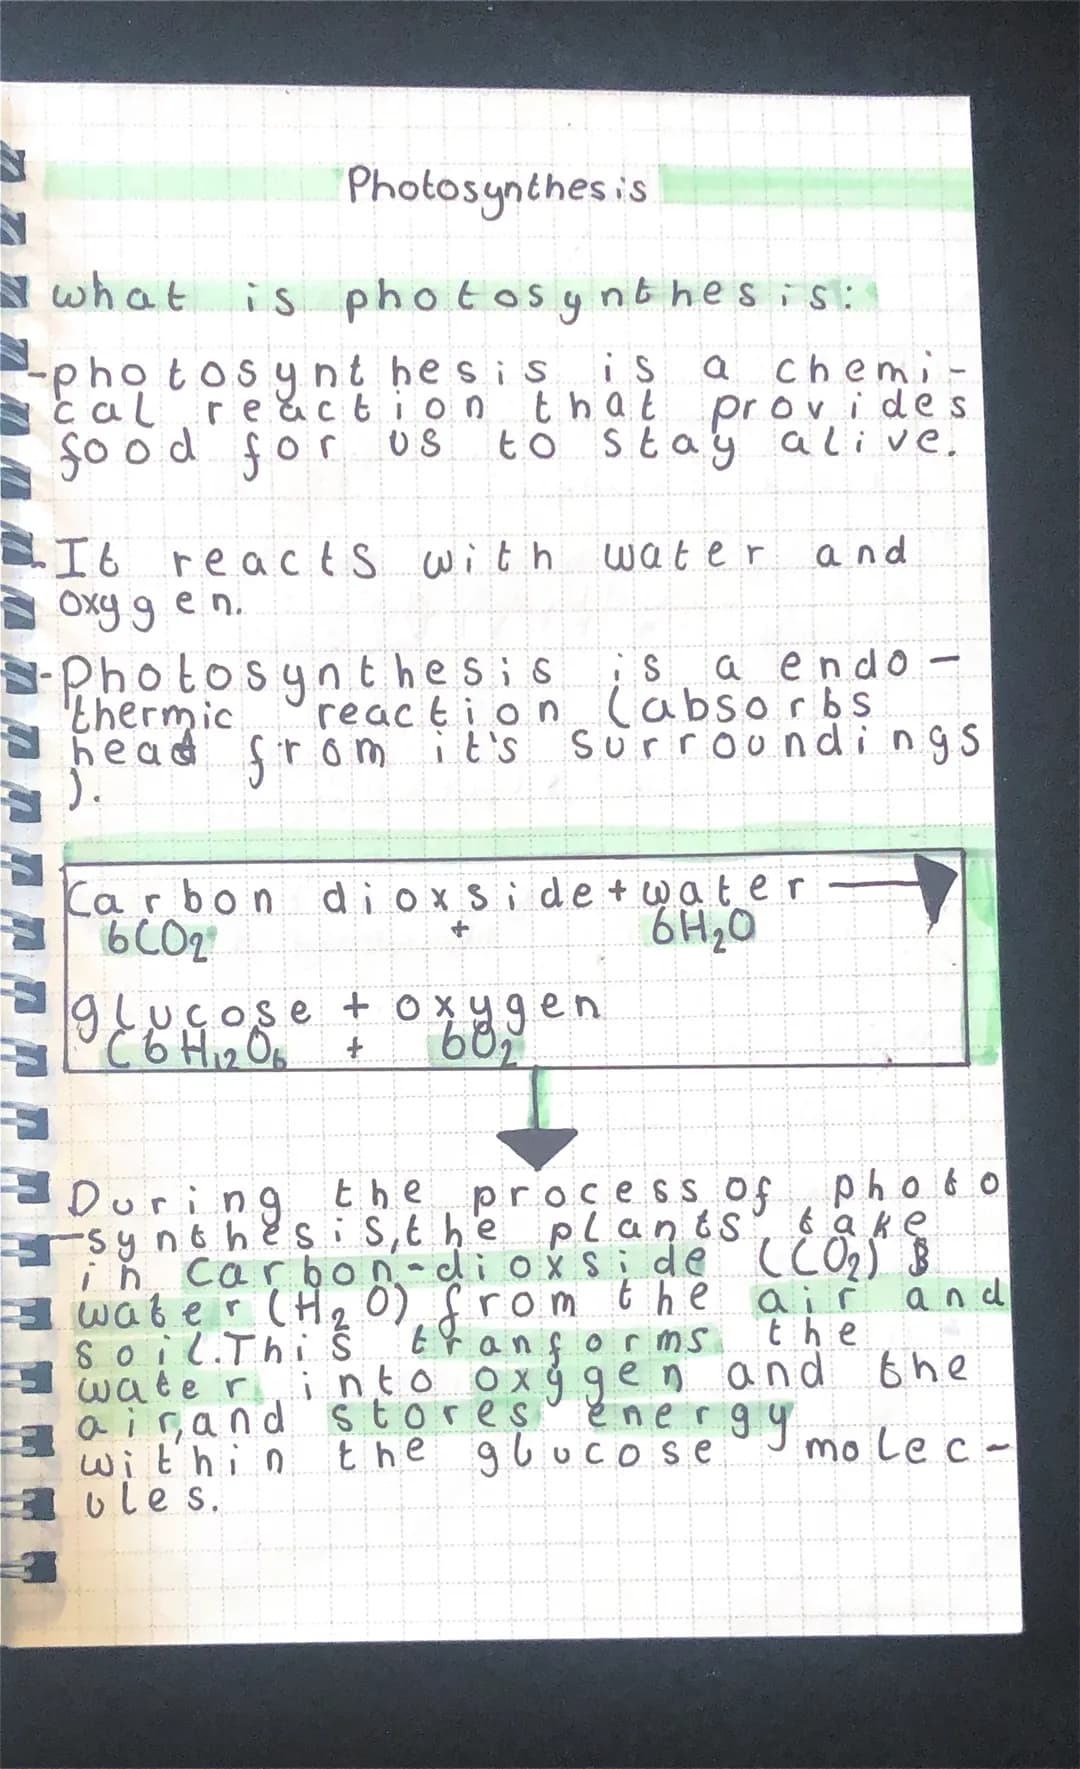 Photosynthesis
what is photosynthesis:
-photosynthesis is a chemi-
cal reaction that provides
food for us to stay alive.
-It reacts with water and
oxygen.
-Photosynthesis is a endo-
thermic reaction (absorbs
head from it's surroundings
).
Carbon dioxside + water
6CO2 + 6H2O
glucose + oxygen
C6H12O6 + 6O2
During the process of photo
-synthesis, the plants take
in carbon-dioxside (CO2) &
water (H2O) from the air and
soil. This transforms the
water into oxygen and the
air, and stores energy
within the glucose molec-
ules.